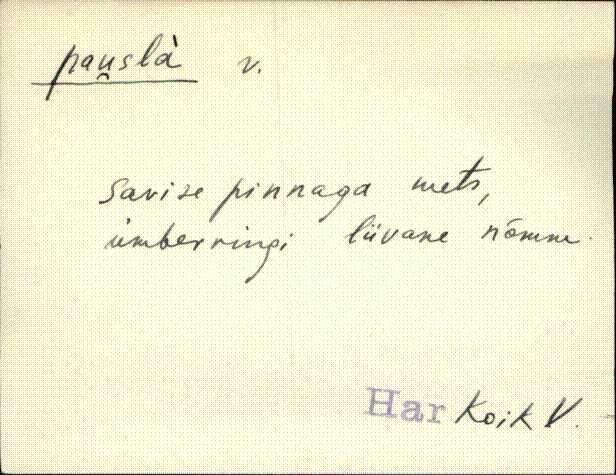 pau̯slà v.
Savise pinnaga mets,
ümberringi liivane nõmm.
Har Koik V.